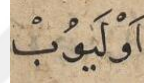 اَوْلَيُوبْ